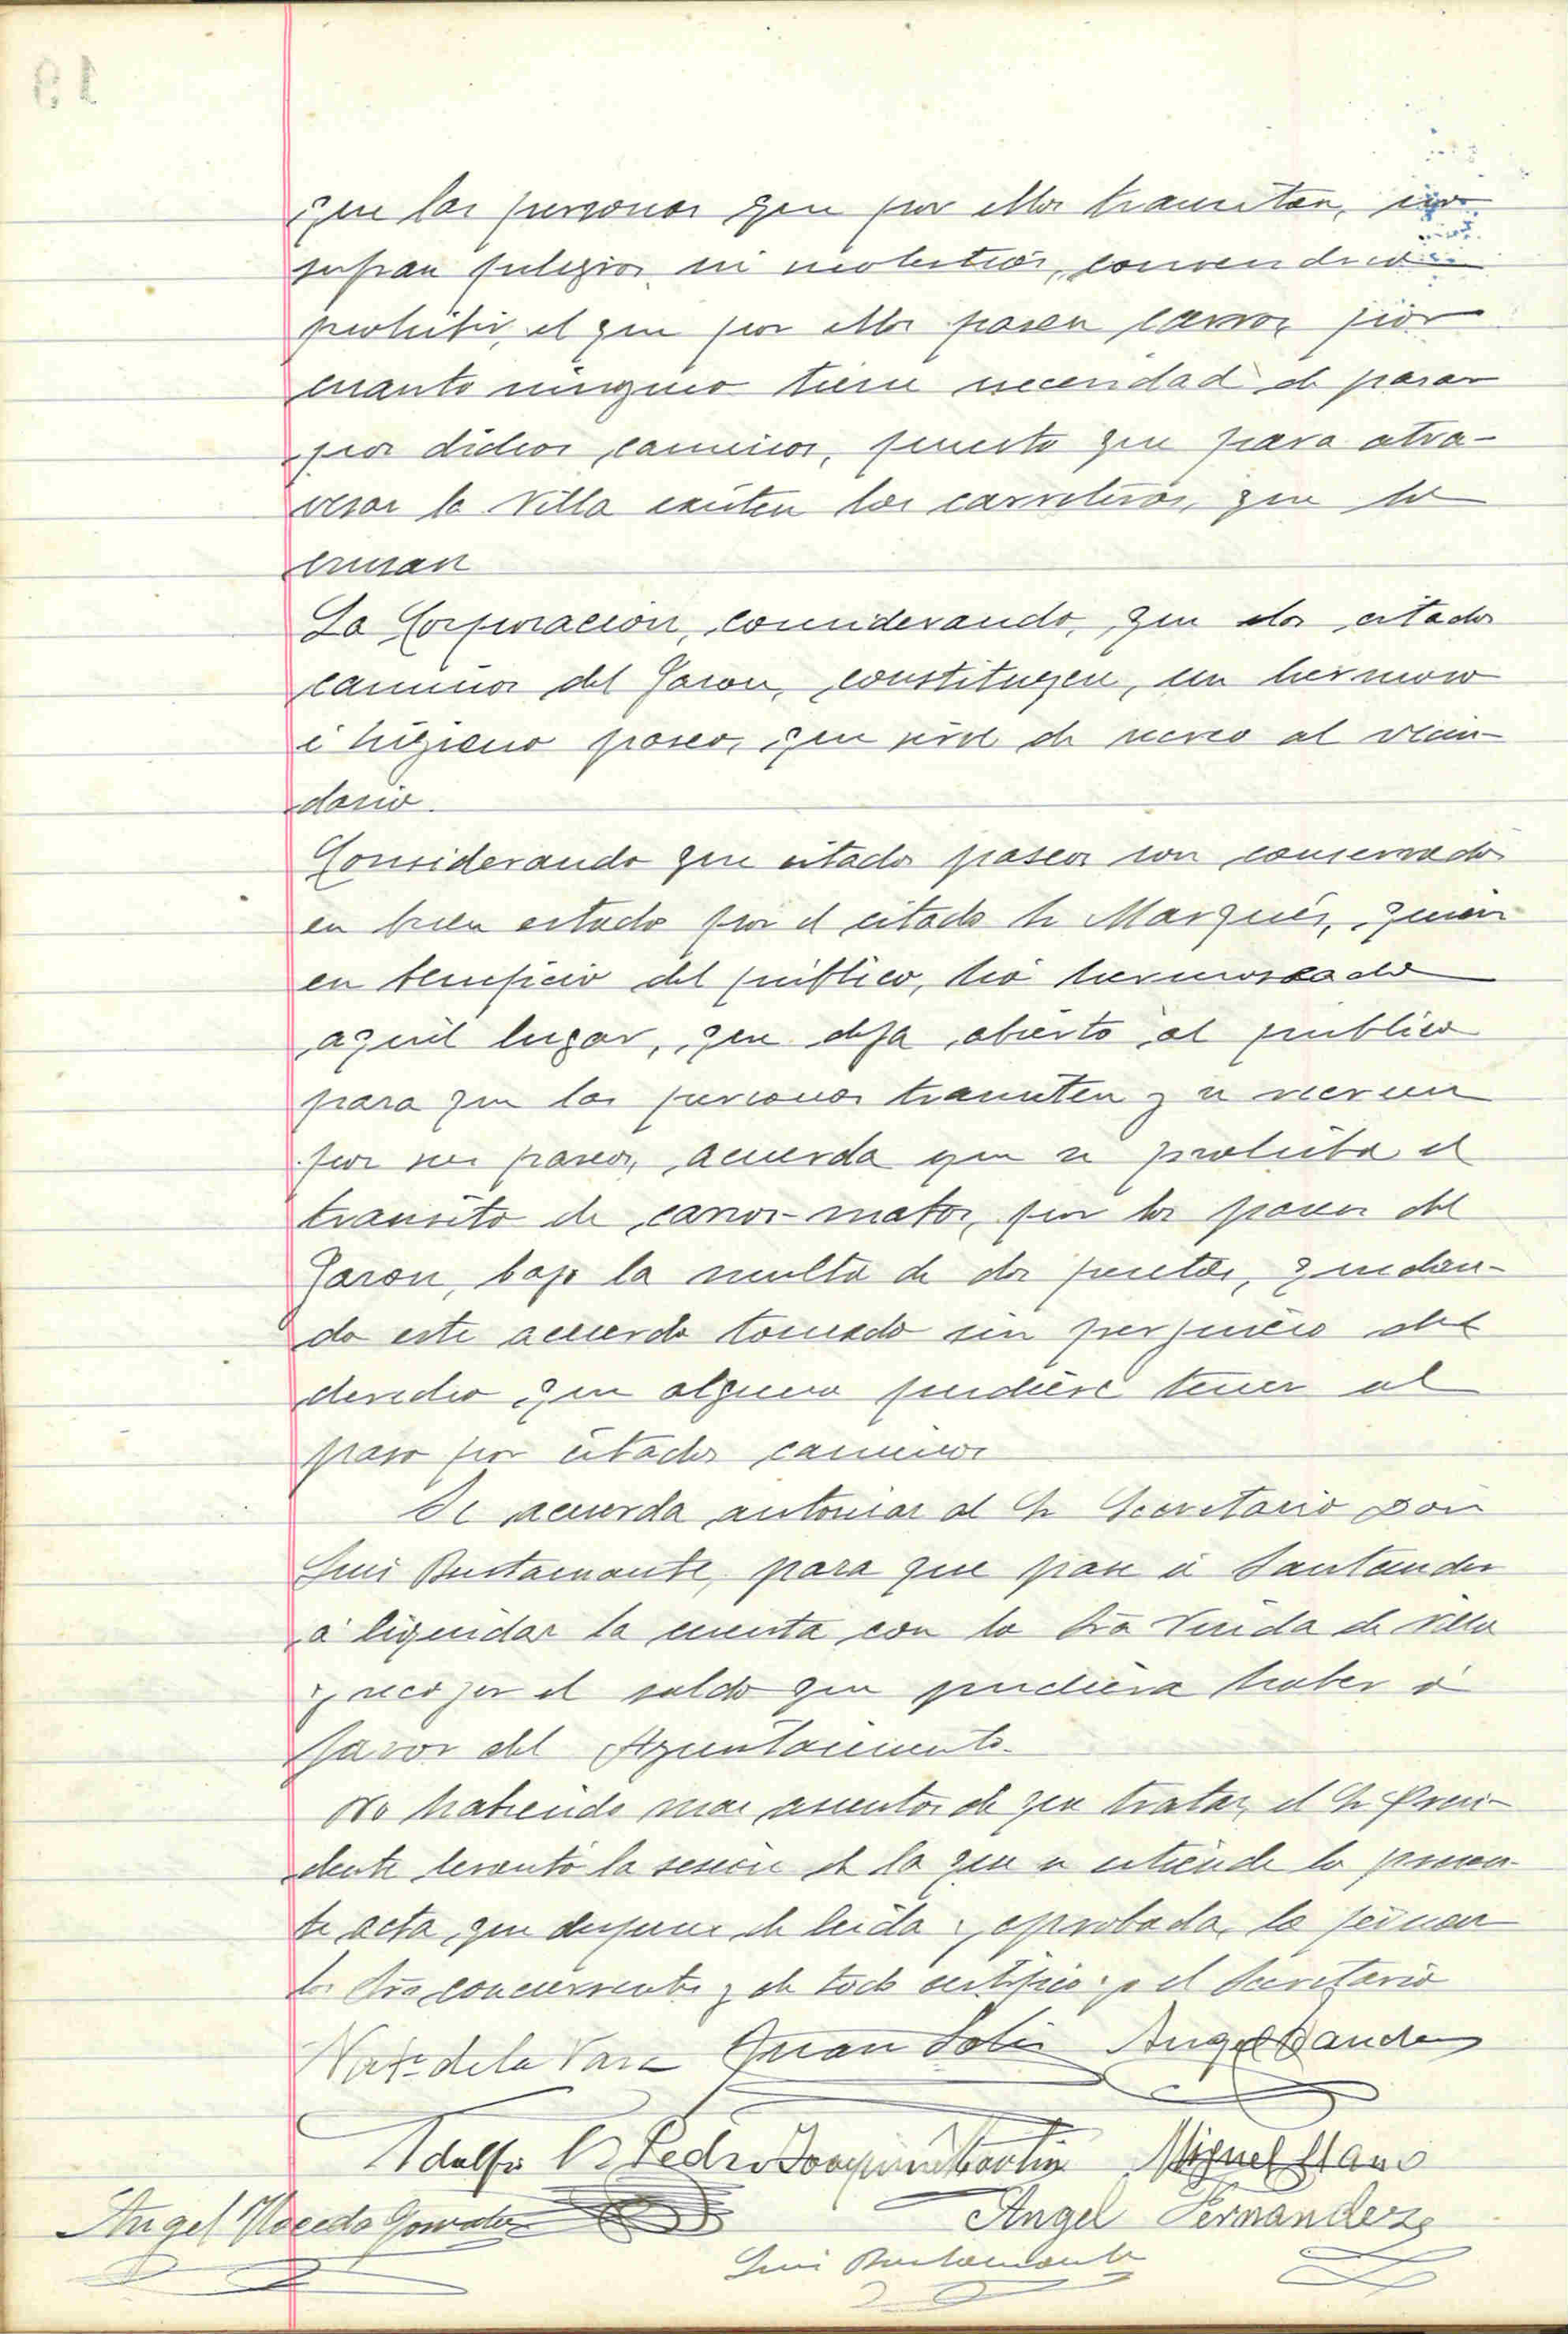 que las personas que por ellos transitan, no
sufran peligros ni molestias, convendria
prohibir, el que por ellos pasen carros por
cuanto ninguno tiene necesidad de pasar
por dichos caminos, puesto que para atra-
vesar la Villa existen las carreteras, que la
cruzan
La Corporacion, considerando, que los citados
caminos del Jaron, constituyen, un hermoso
é higienico paseo, que sirve de recreo al vecin-
dario.
Considerando que citados paseos son conservados
en buen estado por el citado Sr Marqués, quien
en beneficio del público, há hermoseado
aquél lugar, que deja abierto al publico
para que las personas transiten y se recreen
por sus paseos, acuerda que se prohiba el
transito de carros-matos, por los paseos del
Jaron, bajo la multa de dos pesetas, quedan-
do este acuerdo tomado sin perjuicio del
derecho que alguno pudiese tener al
paso por citados caminos
Se acuerda autorizar al Sr Secretario Don
Luis Bustamante, para que pase á Santander
á liquidar la cuenta con la Sra Viuda de Villa
y recojer el saldo que pudiera haber á
favor del Ayuntamiento.
No habiendo mas asuntos de que tratar, el Sr Presi-
dente levantó la sesion de la que se estiende la presen-
te acta, que despues de leida y aprobada, la firman
los Srs concurrentes y de todo certifico yo el Secretario
de la Vara Juan Solis Angel
Adolfo Pedro Joaquin Miguel Llano
Angel Gonzalez Angel Fernandez
Luis Bustamante